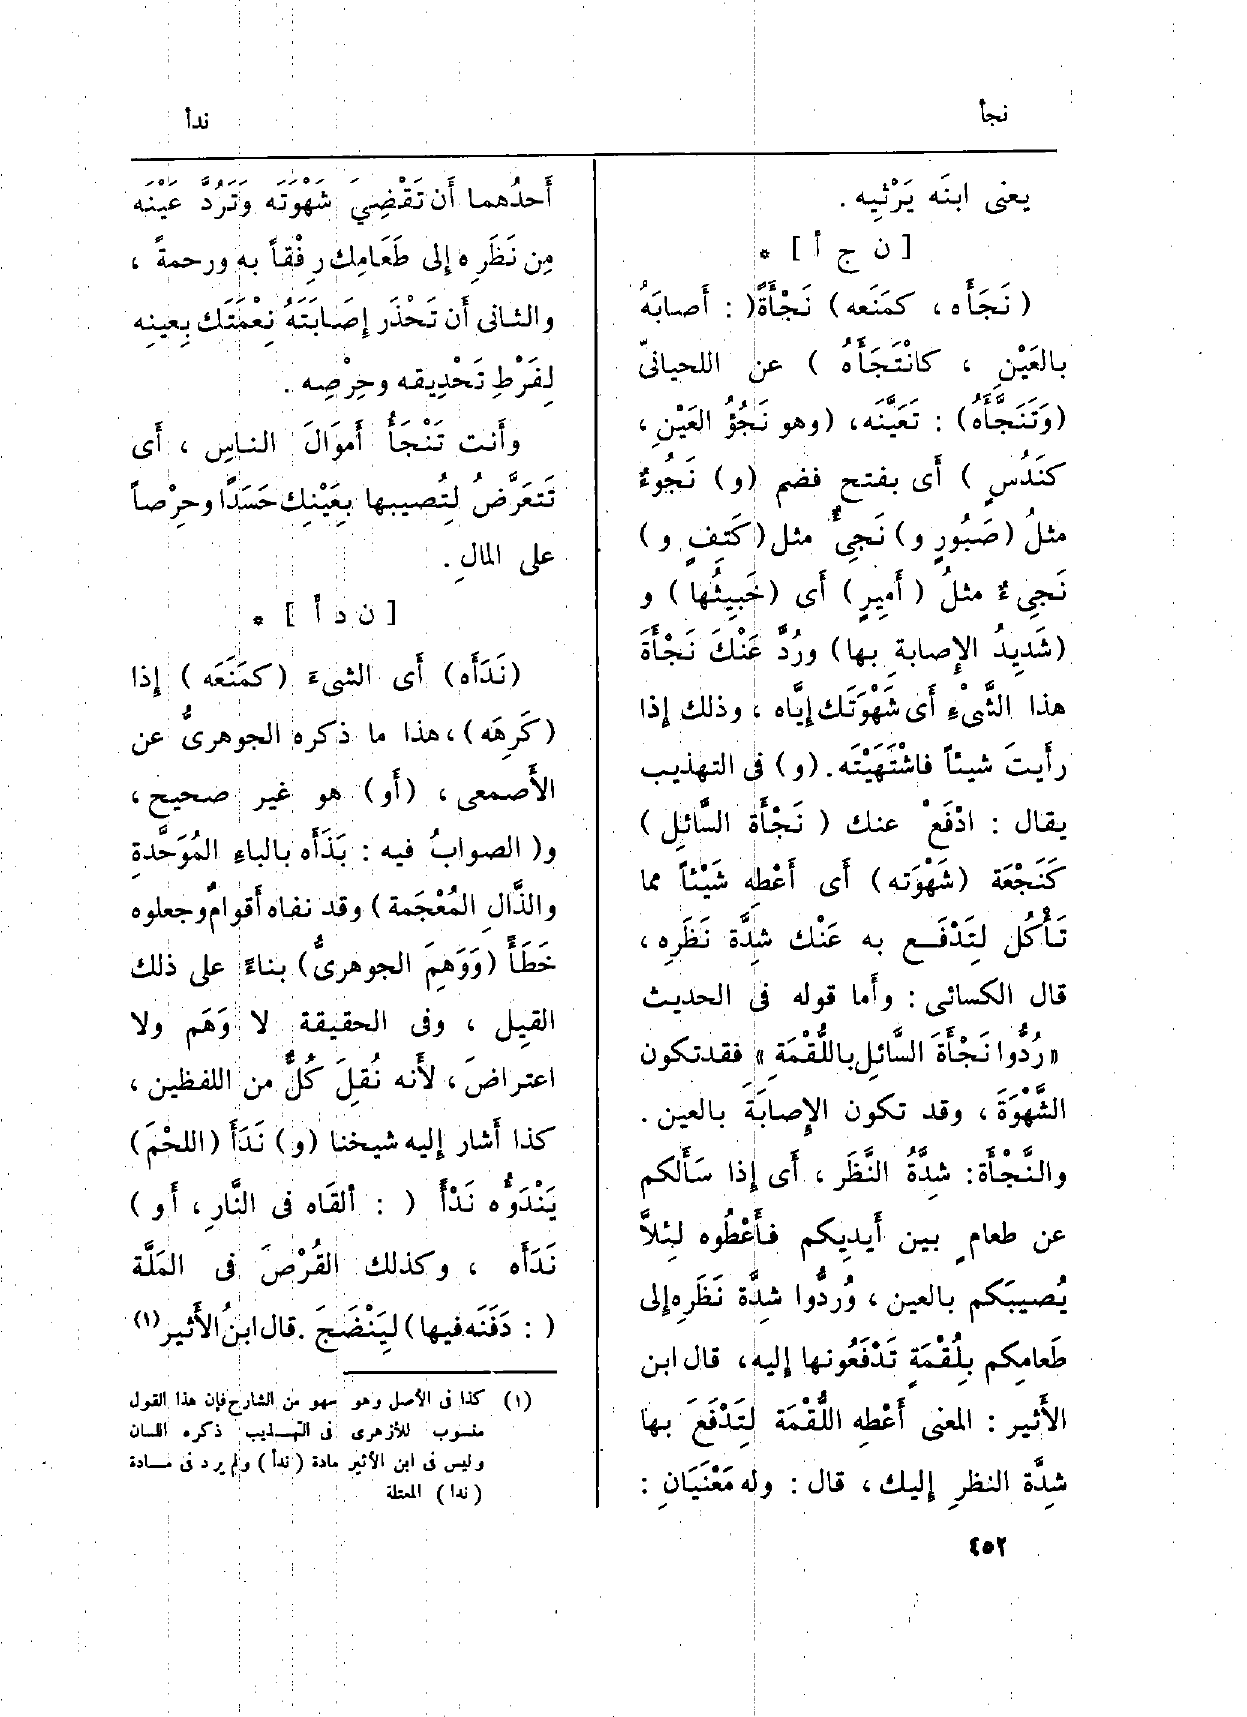 نجأ
ندأ
يعنى ابنَه يَرْثِيه .
[ ن ج أ ] *
( نَجَأَه ، كمَنَعه ) نَجْأَةً ( : أَصابَهُ
بالعَيْنِ ، كانْتَجَأَهُ ) عن اللحيانىّ
(وَتَنَجَّأَه) : تَعَيَّنَه، (وهو نَجُؤُ العَيْنِ ،
كنَدُسٍ ) أَى بفتح فضم (و) نَجُوءُ
مثلُ (صَبُورٍ و) نَجِئٌ مثل (كَتِفٍ و )
نَجِىءٌ مثلُ ( أَمِيرٍ ) أَى (خَبِيثُها ) و
(شَديدُ الإِصابةِ بها) ورُدَّ عَنْكَ نَجْأَةَ
هذا الشَّىْءِ أَى شَهْوَتَك إِيَّاه ، وذلك إِذا
رأَيتَ شيئاً فاشْتَهَيْتَه. (و) فى التهذيب
يقال : ادْفَعْ عنك ( نَجْأَة السَّائِلِ )
كَنَجْعَة (شَهْوَته ) أَى أَعْطِه شَيْئاً مما
تَأْكُل لِتَدْفَع به عَنْك شِدَّة نَظَرِه ،
قال الكسائى : وأَما قوله فى الحديث
« رُدُّوا نَجْأَةَ السَّائِلِ باللُّقْمَةِ » فقد تكون
الشَّهْوَةَ ، وقد تكون الإِصابَةَ بالعين .
والنَّجْأَة: شِدَّةُ النَّظَر ، أَى إِذا سَأَلكم
عن طعام ٍ بين أَيدِيكم فأَعْطُوه لِئلاَّ
يُصيبَكم بالعين ، وُردُّوا شِدَّة نَظَرِه إِلى
طعامِكم بِلُقْمَةٍ تَدْفَعُونها إِليه، قال ابن
الأَثير : المعنى أَعْطِه اللُّقْمَة لِتَدْفَعَ بها
شِدَّة النظرِ إِليك ، قال : وله مَعْنَيَانِ :
أَحدُهما أَن تَقْضِىَ شَهْوَتَه وَتَرُدَّ عَيْنَه
مِن نَظَرِه إِلى طَعَامِك رِفْقاً به ورحمةً ،
والثانى أَن تَحْذَر إِصَابَتَهُ نِعْمَتَك بِعينِه
لِفَرْطِ تَحْدِيقه وحِرْصِه .
وأَنت تَنْجَأُ أَموَالَ الناسِ ، أَى
تَتَعَرَّضُ لِتُصيبها بِعَيْنِك حَسَدًا وحِرْصاً
على المالِ .
[ ن د أ ] *
(نَدَأَه) أَى الشىءَ (كمَنَعَه ) إِذا
(كَرِهَه) ، هذا ما ذكره الجوهرىُّ عن
الأَصمعى ، (أَو) هو غير صحيح ،
و( الصوابُ فيه : بَذَأَه بالباءِ المُوَحَّدةِ
والذَّالِ المُعْجَمة ) وقد نفاه أَقوامٌ وجعلوه
خَطَأً (وَوَهِمَ الجوهرىُّ) بناءً على ذلك
القيل ، وفى الحقيقة لا وَهَم ولا
اعتراضَ ، لأَنه نُقِلَ كُلٌّ من اللفظين ،
كذا أَشار إِليه شيخنا (و) نَدَأَ (اللحْمَ)
يَنْدَوُّه نَدْأً ( : أَلقَاه فى النَّارِ ، أَو )
نَدَأَه ، وكذلك القُرْصَ فى المَلَّة
( : دَفَنَه فيها) لِيَنْضَجَ . قال ابنُ الأَثير (١)
(١) كذا فى الأصل وهو سهو من الشارح فإن هذا القول
منسوب للأزهرى فى التهذيب ذكره اللسان
وليس فى ابن الأثير مادة ( ندأ ) ولم يرد فى مادة
( ندا ) المعتلة
٤٥٢